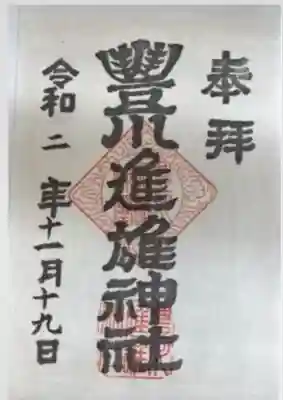 奉拜
豐川進雄神社
令和二年十一月十九日